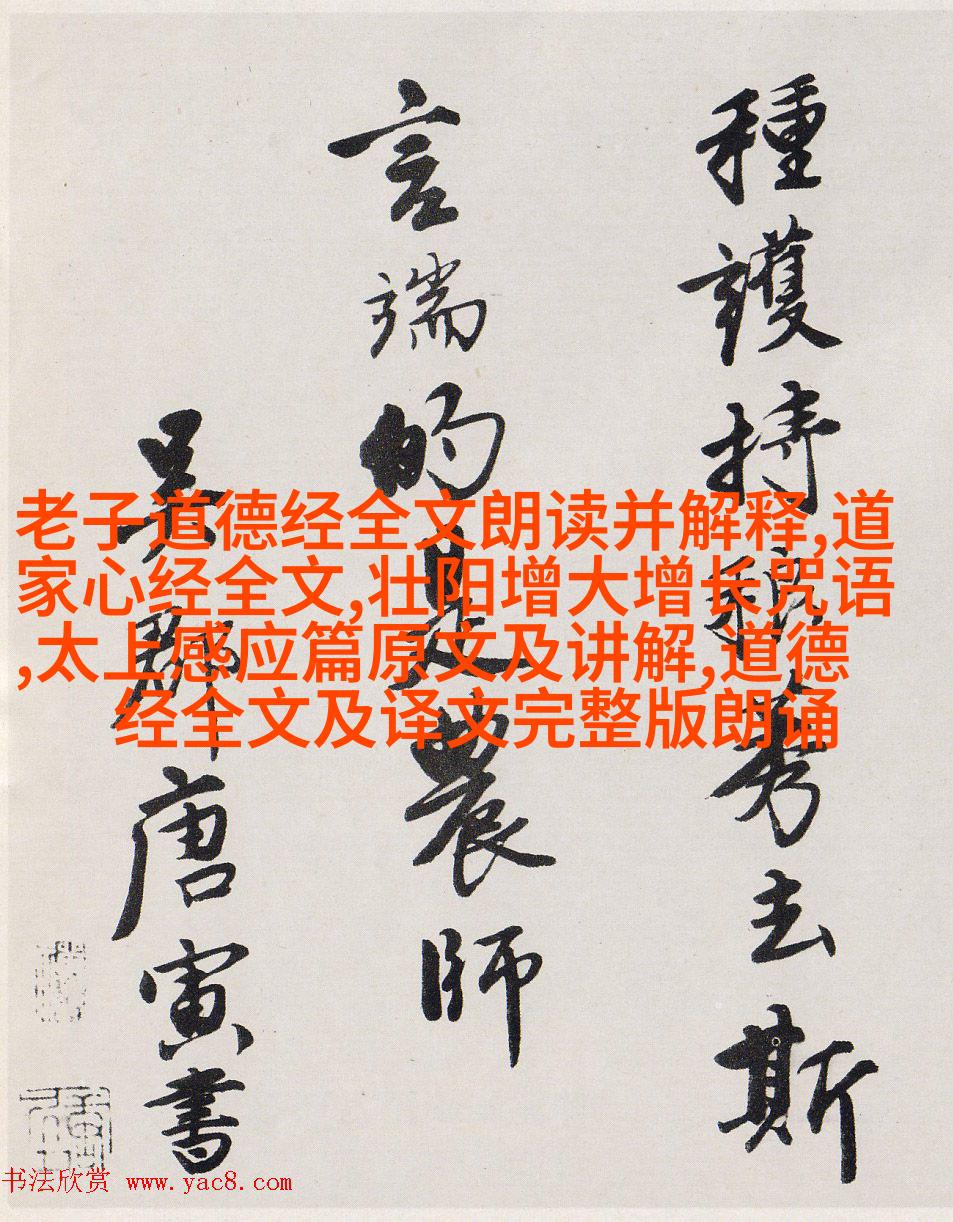 種護持稂莠去斯
言端的是農師
吳郡唐寅書
老子道德经全文朗读并解释,道
家心经全文,壮阳增大增长咒语
,太上感应篇原文及讲解,道德
经全文及译文完整版朗诵
书法欣赏 www.yac8.com